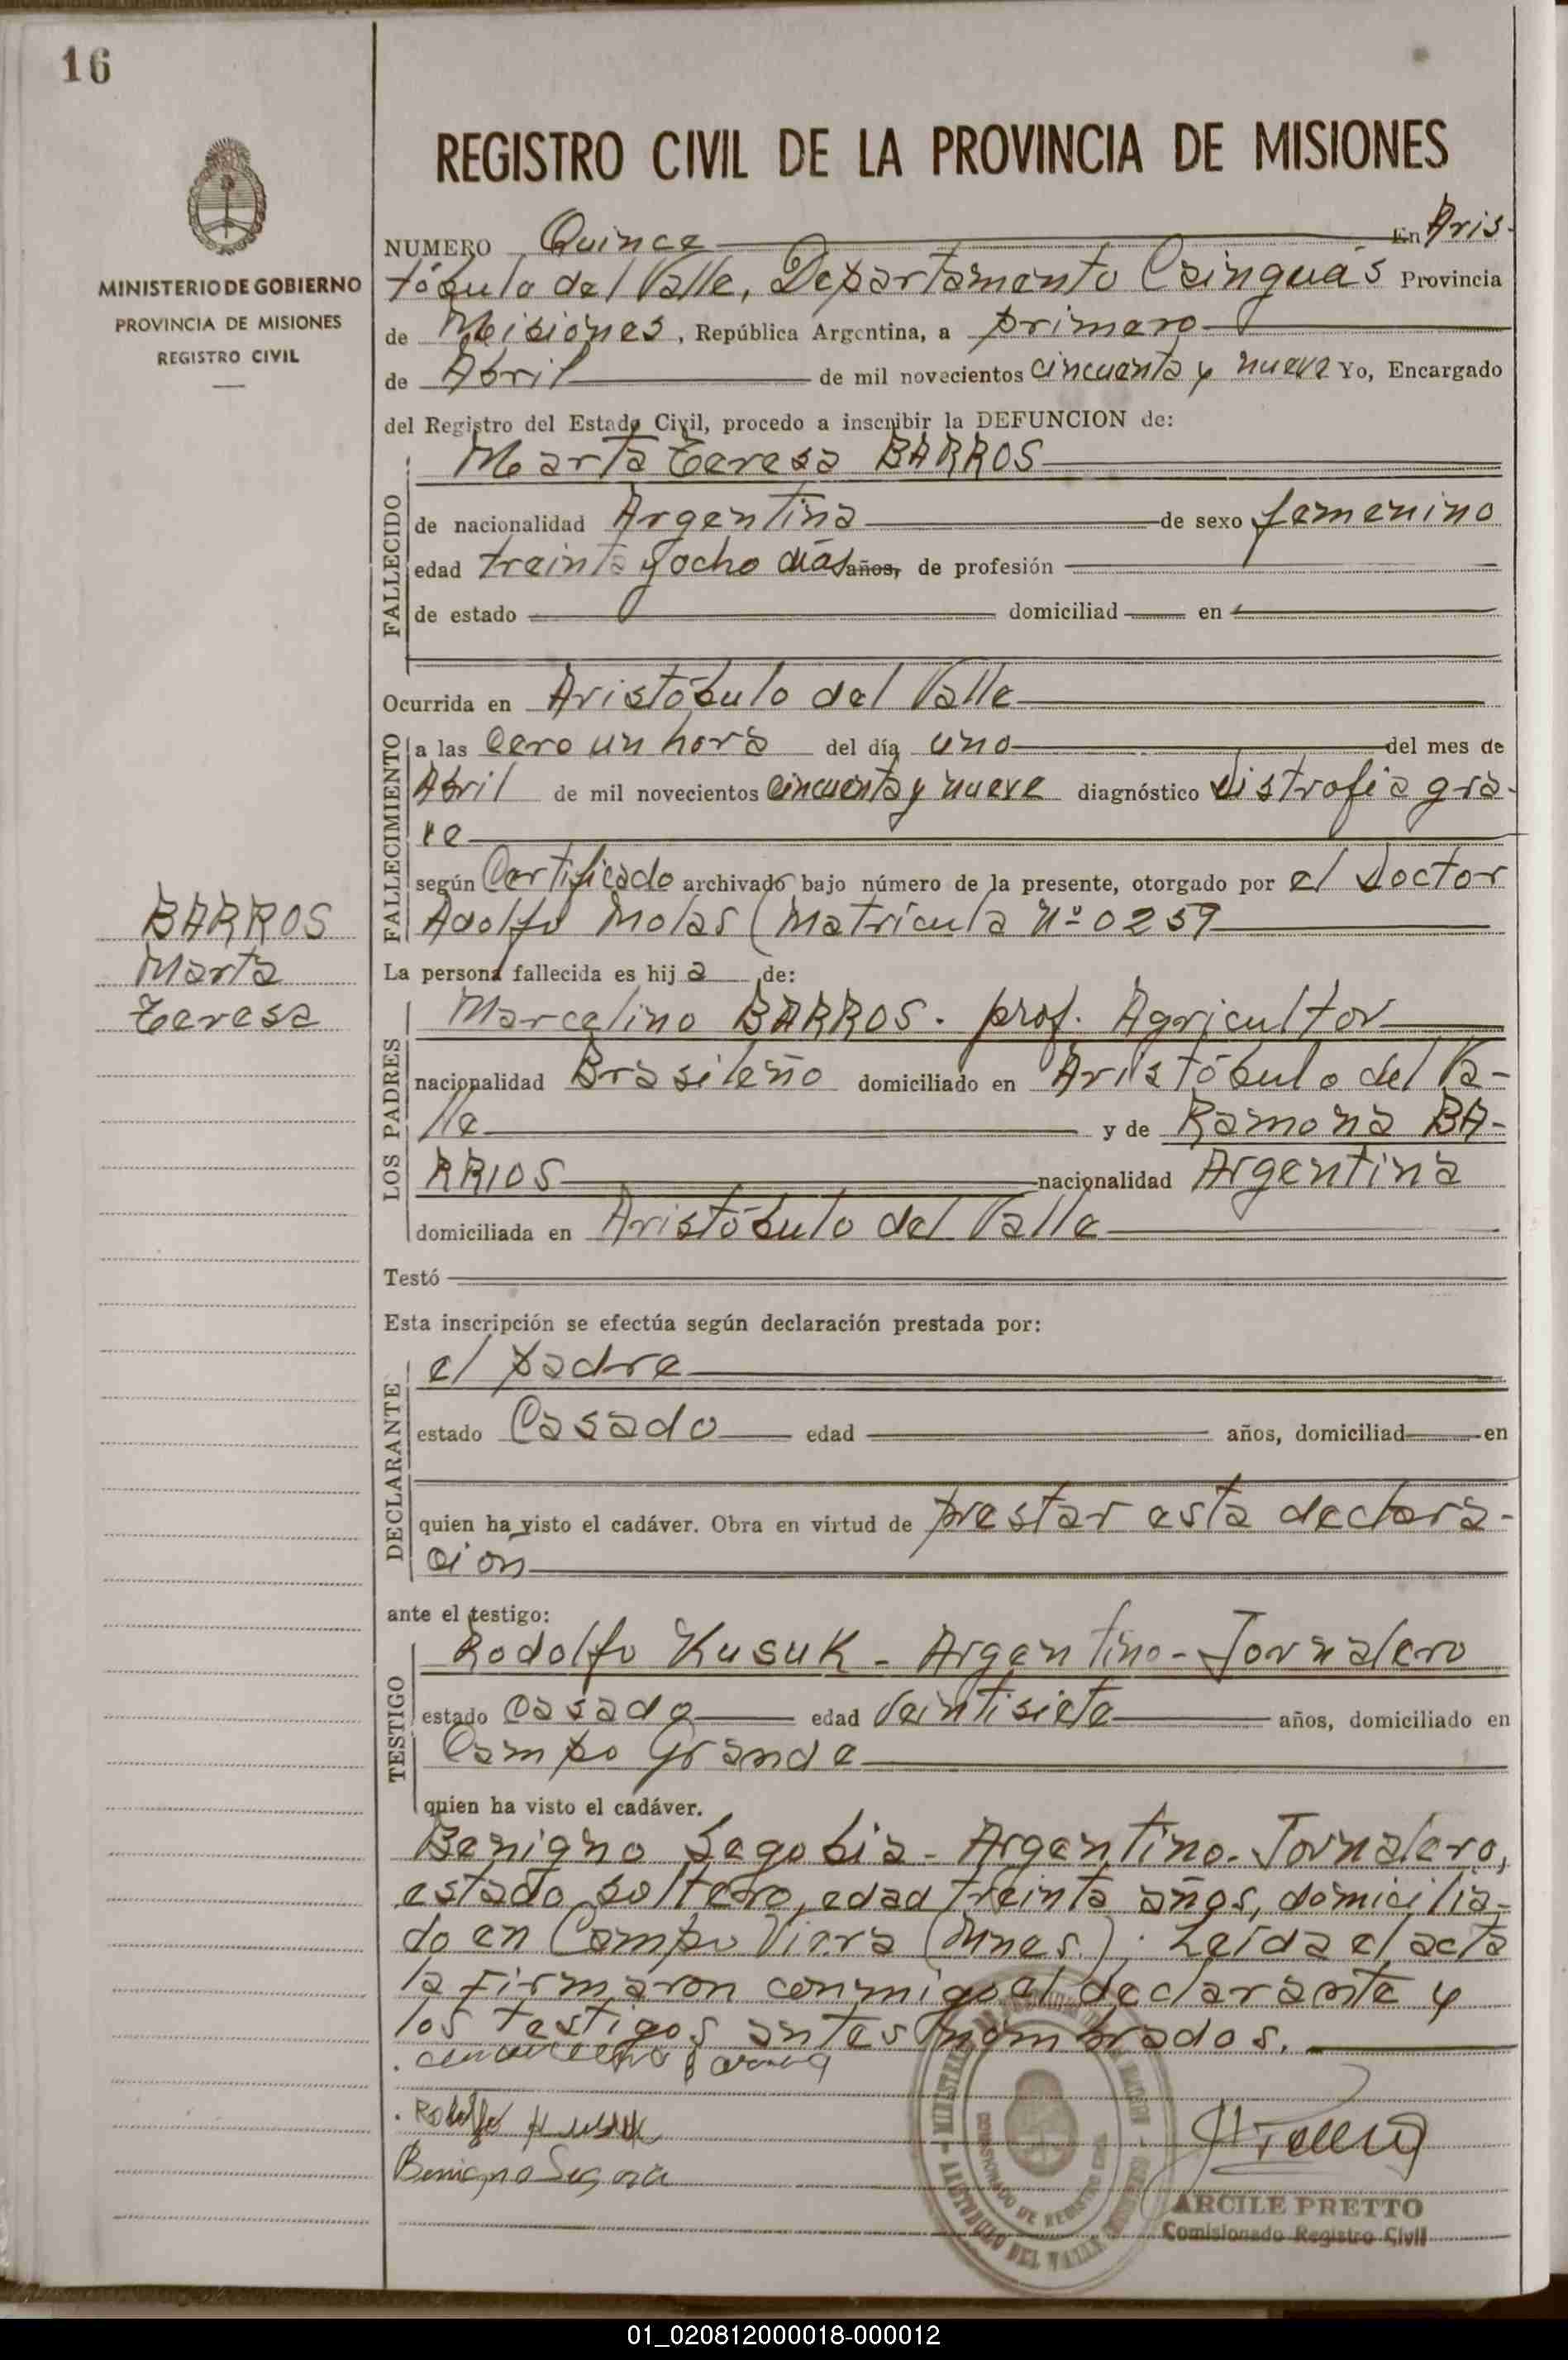 16
MINISTERIO DE GOBIERNO
PROVINCIA DE MISIONES
REGISTRO CIVIL
BARROS
Marta
Teresa
REGISTRO CIVIL DE LA PROVINCIA DE MISIONES
NUMERO Quince En Aris-
tóbulo del Valle, Departamento Cainguás Provincia
de Misiones, República Argentina, a primero
de Abril de mil novecientos cincuenta y nueve Yo, Encargado
del Registro del Estado Civil, procedo a inscribir la DEFUNCION de:
Marta Teresa BARROS
FALLECIDO
de nacionalidad Argentina de sexo femenino
edad treinta y ocho días años, de profesión
de estado domiciliad en
Ocurrida en Aristóbulo del Valle
FALLECIMIENTO
a las Cero un hora del día uno del mes de
Abril de mil novecientos cincuenta y nueve diagnóstico Distrofia gra-
ve
según Certificado archivado bajo número de la presente, otorgado por el Doctor
Adolfo Molas (Matrícula Nº 0259
La persona fallecida es hija de:
LOS PADRES
Marcelino BARROS. prof. Agricultor
nacionalidad Brasileño domiciliado en Aristóbulo del Va-
lle y de Ramona BA-
RRIOS nacionalidad Argentina
domiciliada en Aristóbulo del Valle
Testó
Esta inscripción se efectúa según declaración prestada por:
DECLARANTE
el padre
estado Casado edad años, domiciliad en
quien ha visto el cadáver. Obra en virtud de prestar esta declara-
ción
ante el testigo:
TESTIGO
Rodolfo Kusuk - Argentino - Jornalero
estado Casado edad Veintisiete años, domiciliado en
Campo Grande
quien ha visto el cadáver.
Benigno Segobia - Argentino. Jornalero,
estado soltero, edad treinta años, domicilia-
do en Campo Viera (Mnes.). Leída el acta
la firmaron conmigo el declarante y
los testigos antes nombrados.
Rodolfo Kusuk
Benigno Segovia
ARCILE PRETTO
Comisionado Registro Civil
01_020812000018-000012